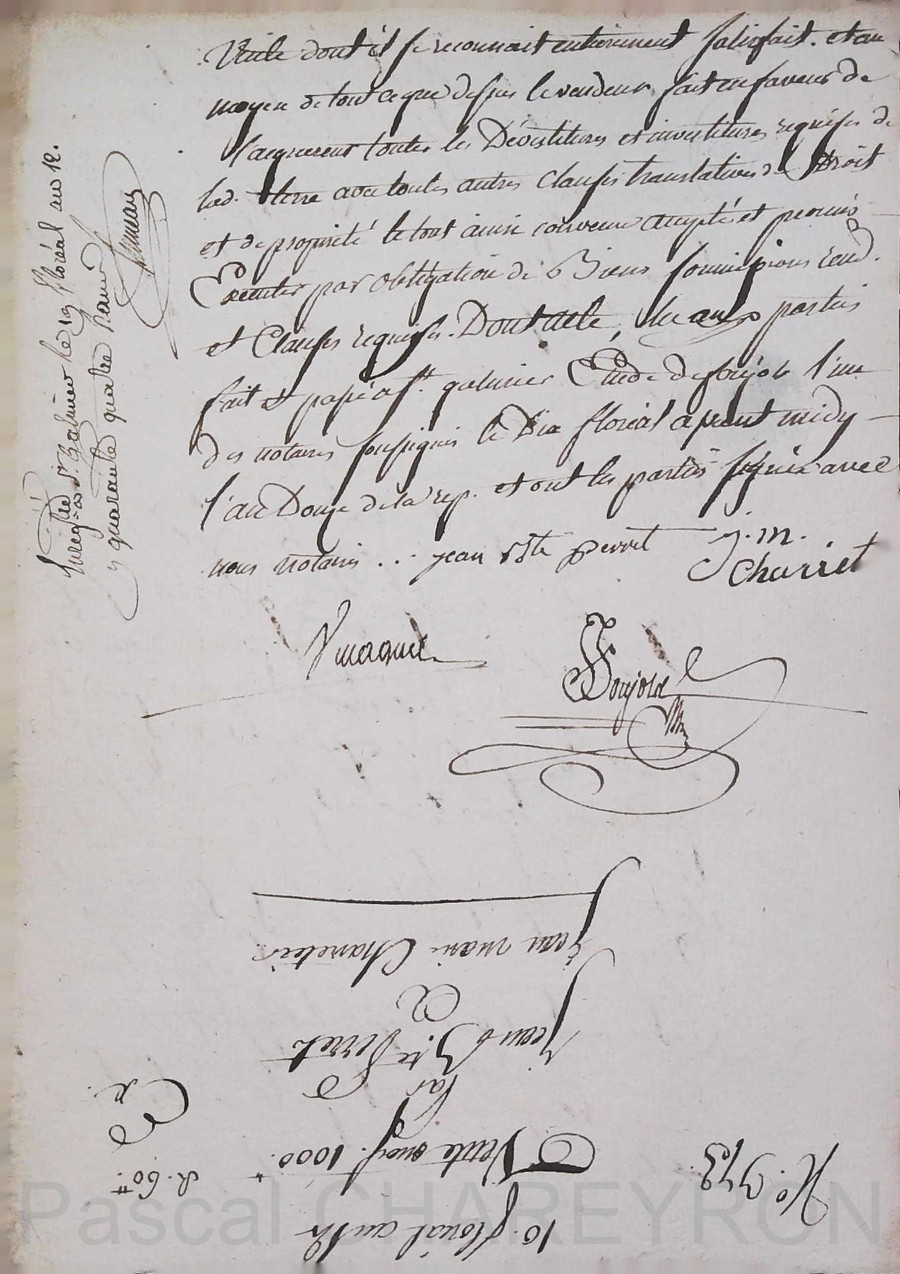 Utile dont il se reconnait entierement satisfait. et au
moyen de tout ce que dessus le vendeur fait en faveur de
l'acquereur toutes les Dévestitures et investitures requises de
lad. terre avec toutes autres clauses translatives de Droit
et de proprieté le tout ainsi convenu accepté et promis
Executer par obligation de Biens soumissions
et Clauses requises. Dont acte, lu aux parties
fait et passé a st. galmier Etude de soujol l'un
des notaires soussignés le Dix floreal apres midy
l'an Douze de la rep. et ont les parties signé avec
nous notaires .. jean Bte perret j. m.
Charret
Soujol
Enregistré à St. Galmier le 19 floréal an 12.
quarante quatre
10 floréal an 12
No. 373.
Vente 1000
R. 60
Par
Jean Bte. Peret
A
Jean mari
Pascal CHAREYRON